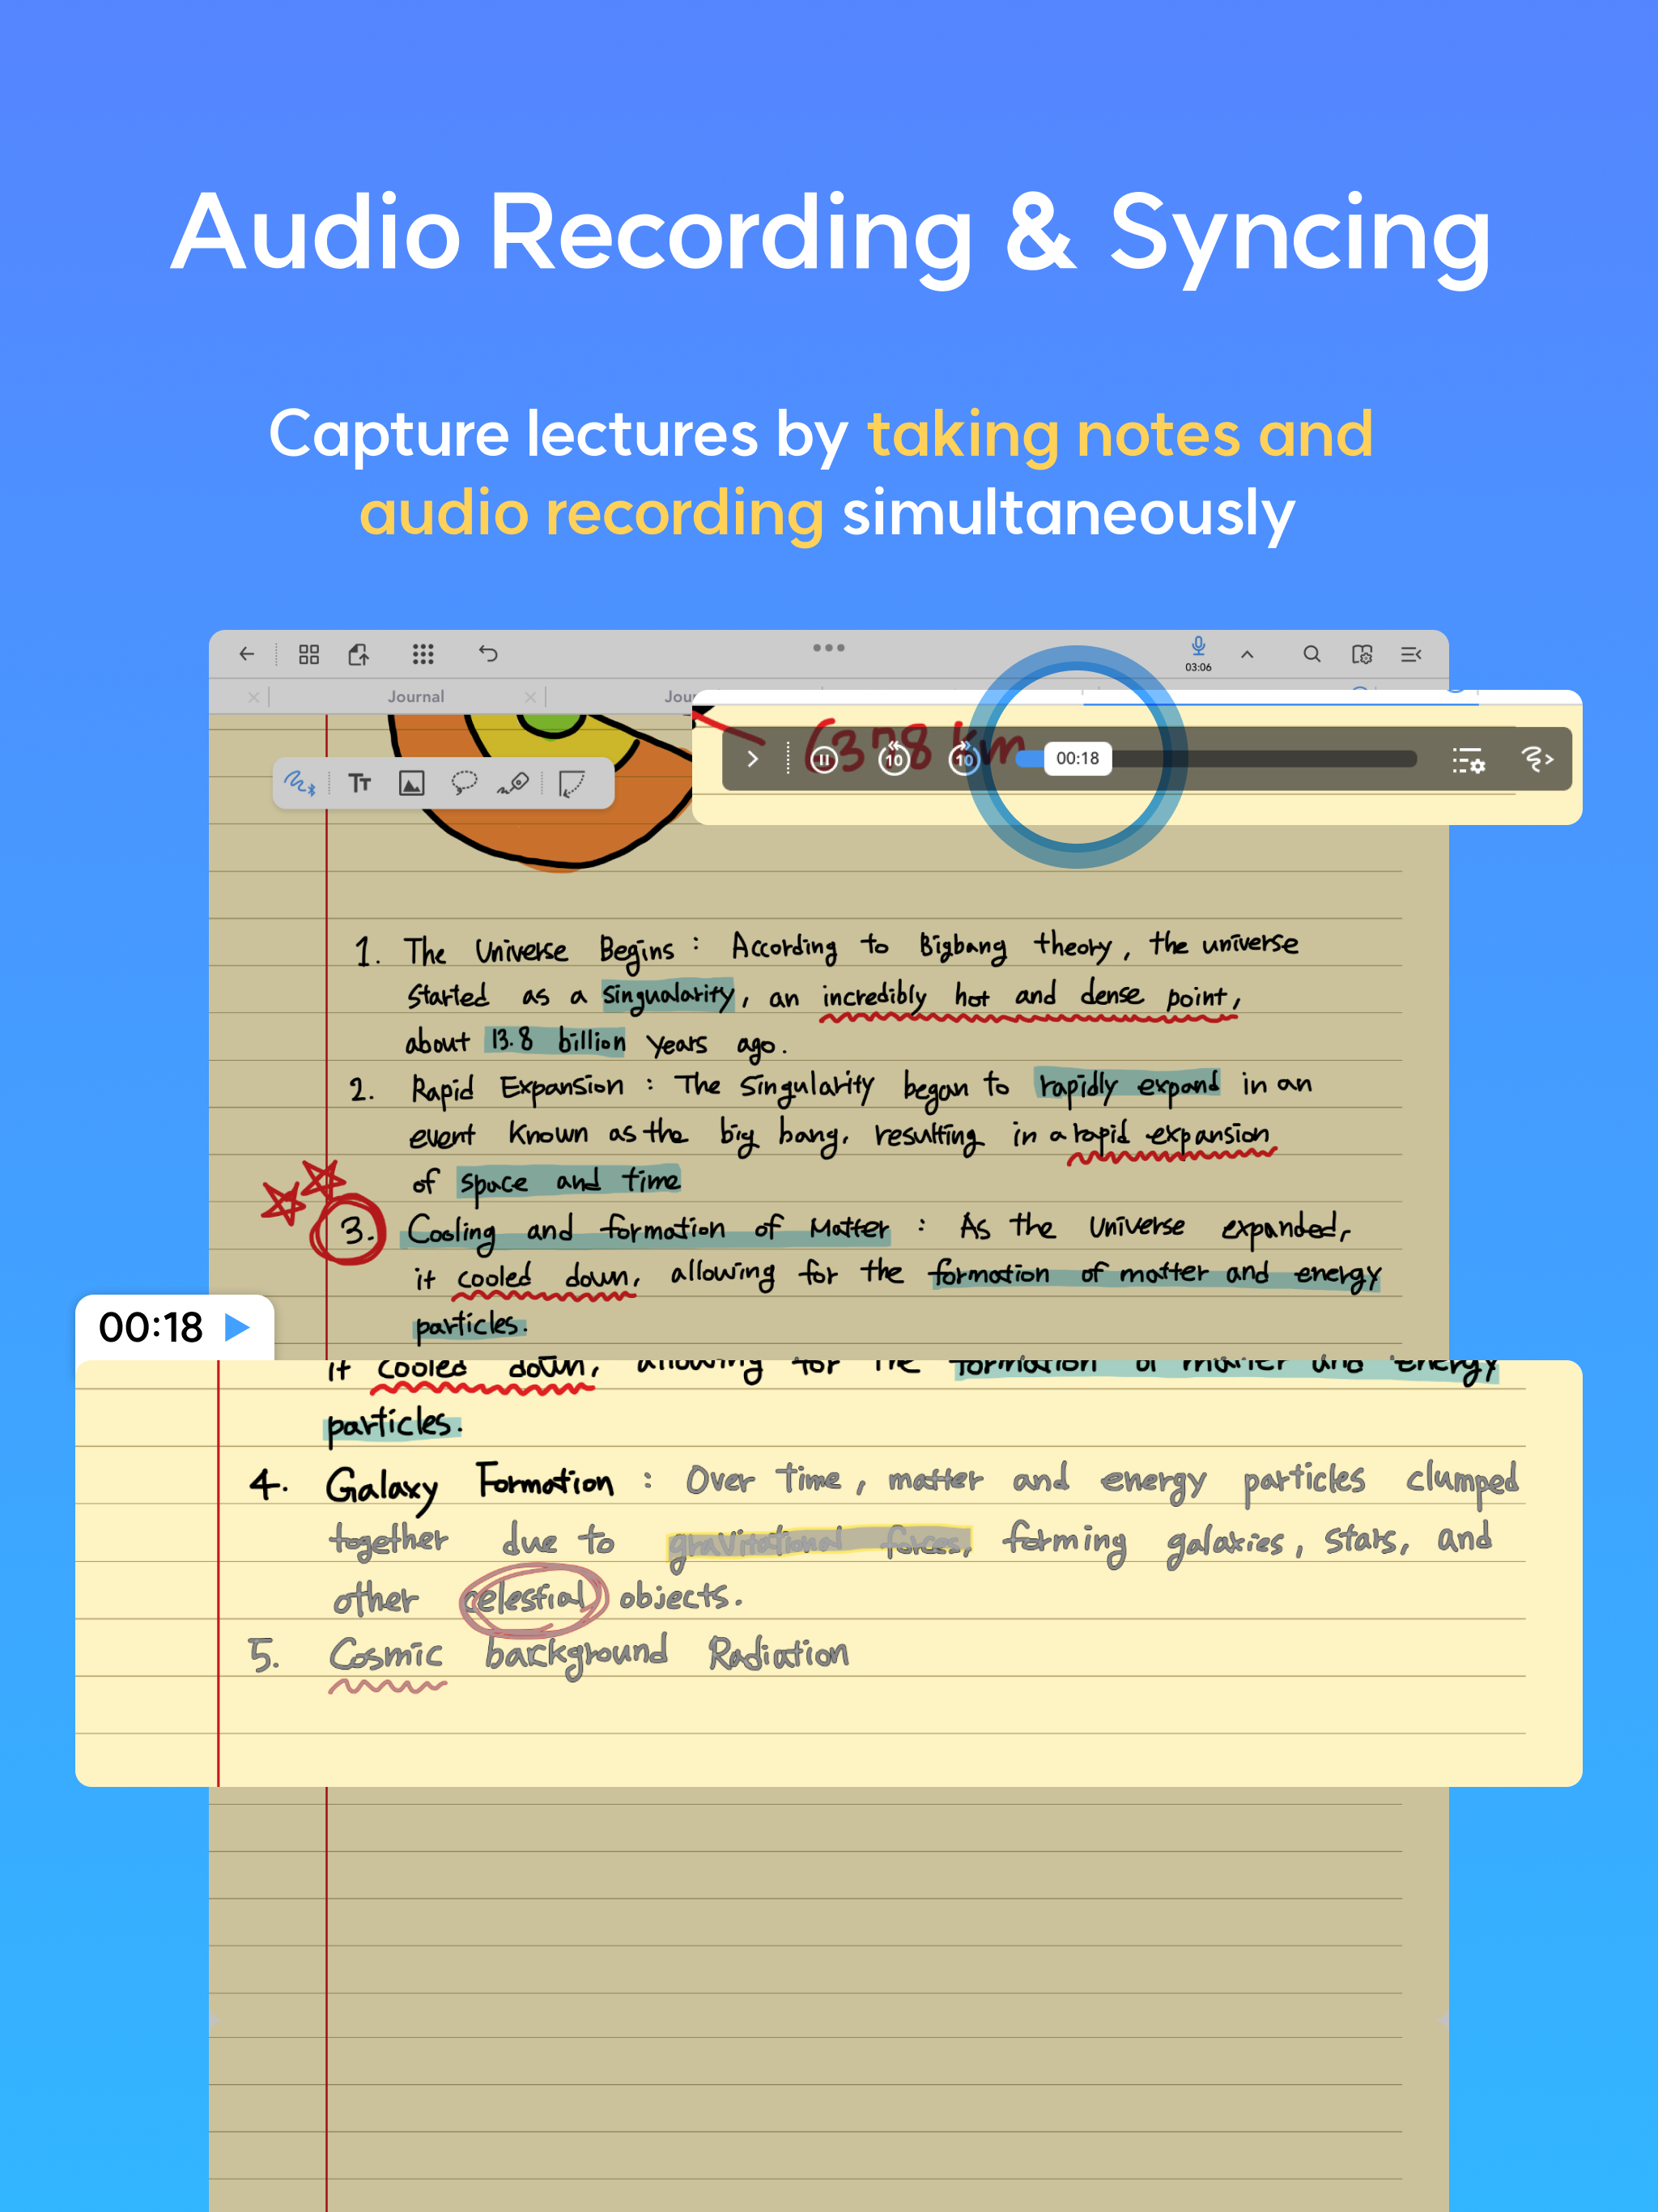 Audio Recording & Syncing
Capture lectures by taking notes and
audio recording simultaneously
03:06
Journal
Jour
6378 km
10
10
00:18
1. The Universe Begins : According to Bigbang theory, the universe
started as a singualarity, an incredibly hot and dense point,
about 13.8 billion years ago.
2. Rapid Expansion : The singularity began to rapidly expand in an
event known as the big bang, resulting in a rapid expansion
of space and time
3. Cooling and formation of Matter : As the Universe expanded,
it cooled down, allowing for the formation of matter and energy
particles.
00:18
it cooled down, allowing for the formation of matter and energy
particles.
4. Galaxy Formation : Over time, matter and energy particles clumped
together due to gravitational forces, forming galaxies, stars, and
other celestial objects.
5. Cosmic background Radiation